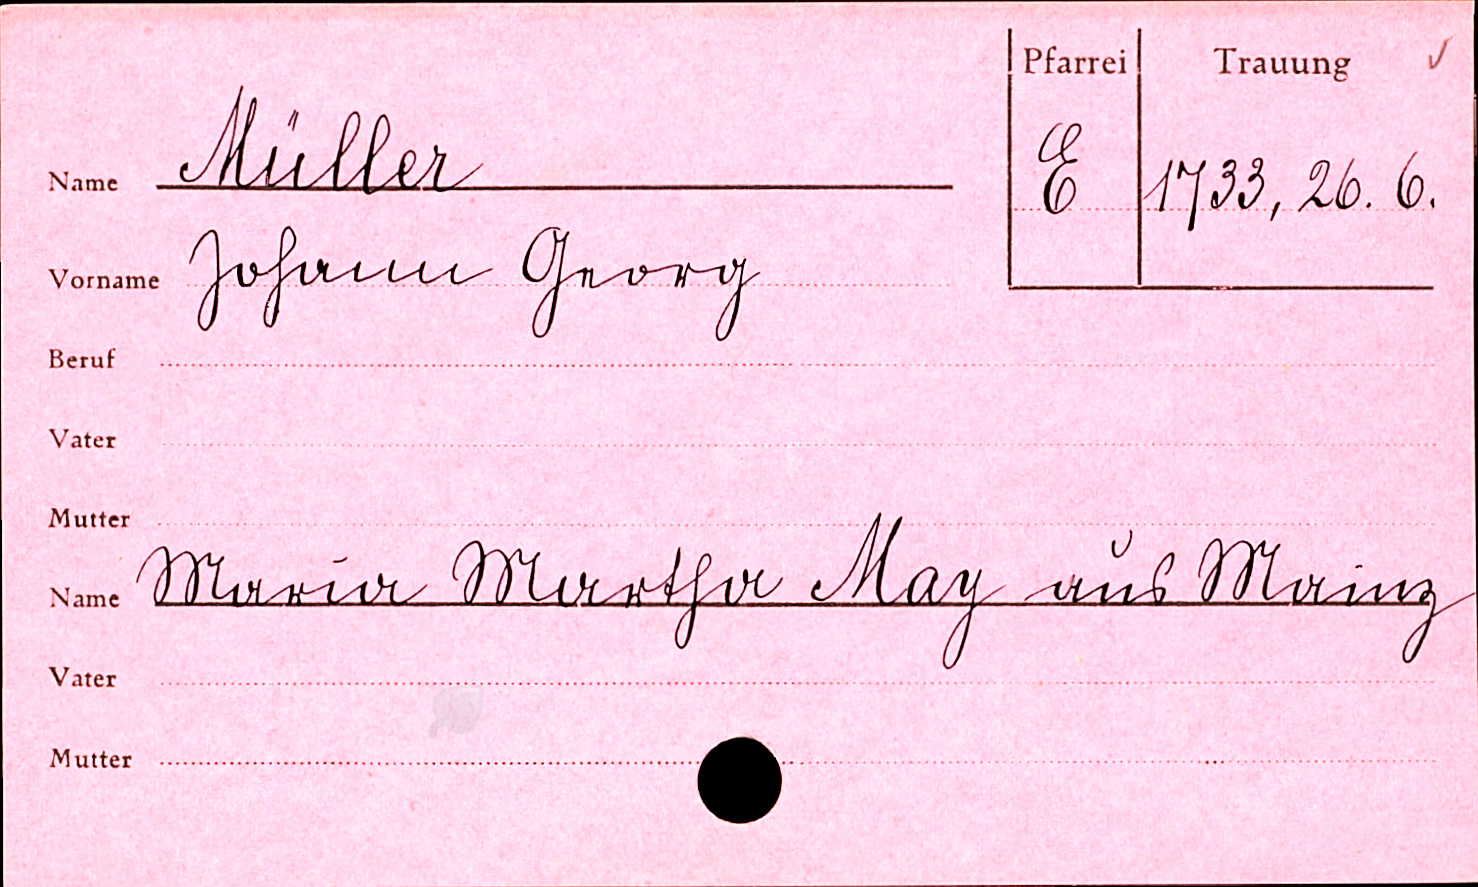 Pfarrei Trauung
Name Müller
E 1733, 26. 6.
Vorname Johann Georg
Beruf
Vater
Mutter
Name Maria Martha May aus Mainz
Vater
Mutter